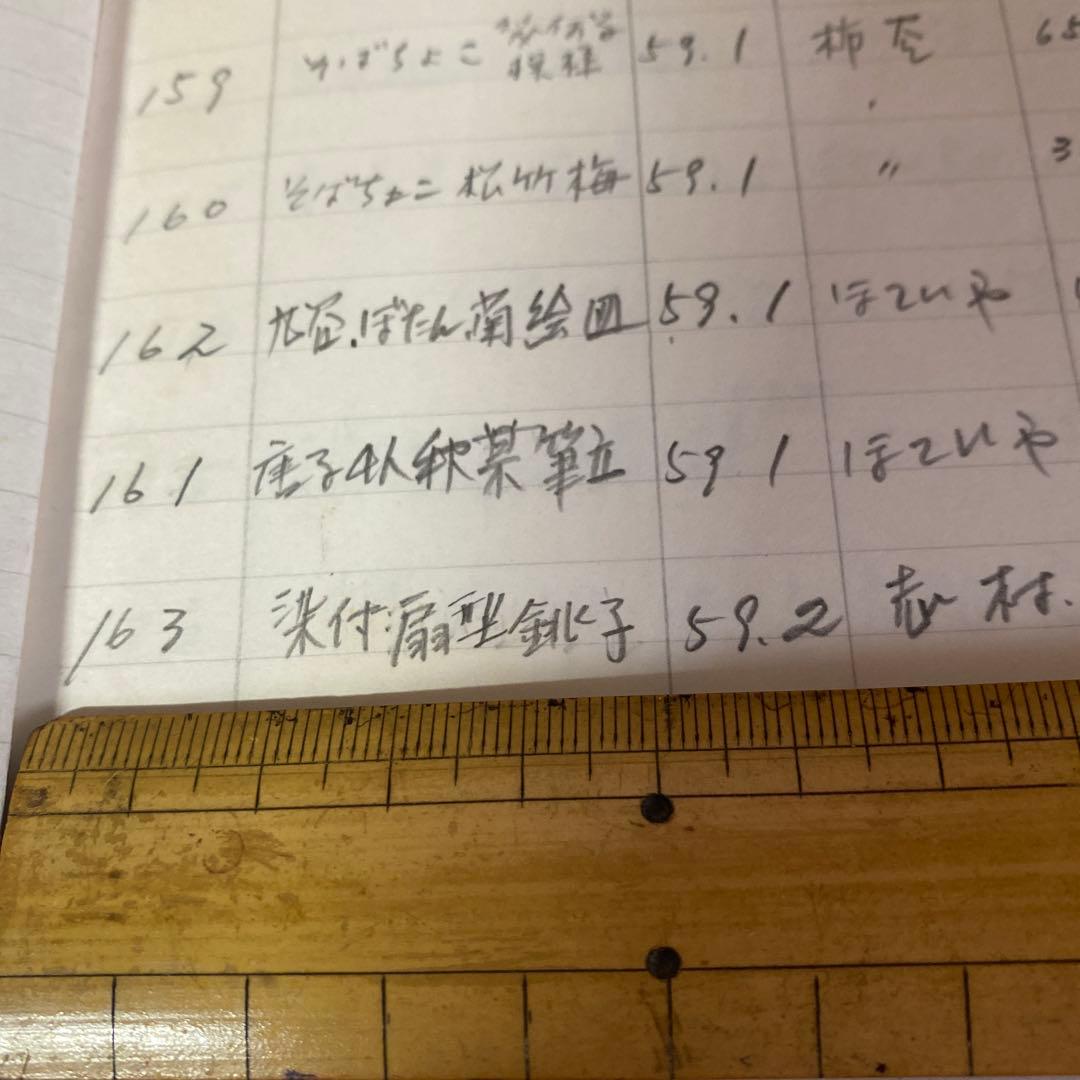 159 そばちょこ 模様 59.1 柿 65
160 そばちょこ 松竹梅 59.1 〃 3
162 九谷.ぼたん蘭絵皿 59.1 ほていや
161 唐子4人秋葉筆立 59 1 ほていや
163 染付扇型銚子 59.2 志村.